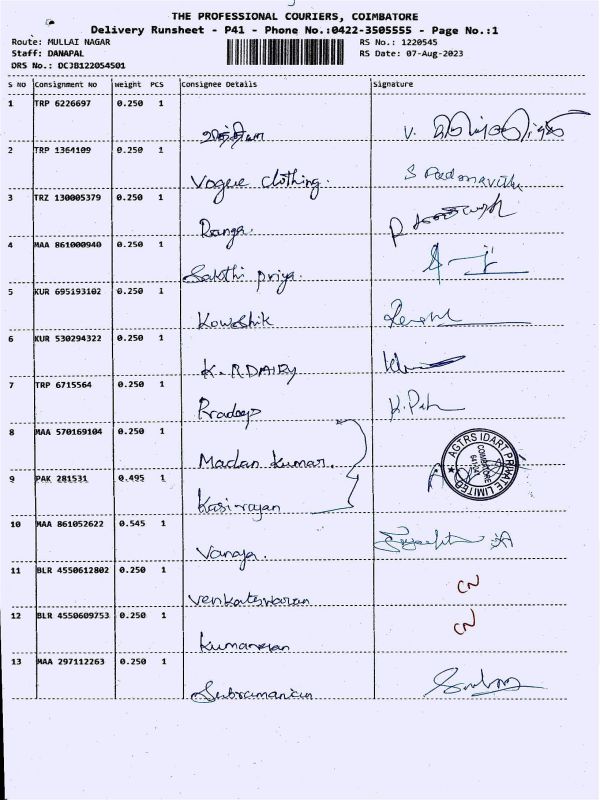 THE PROFESSIONAL COURIERS, COIMBATORE
Delivery Runsheet - P41 - Phone No.:0422-3505555 - Page No.:1
Route: MULLAI NAGAR RS No.: 1220545
Staff: DANAPAL RS Date: 07-Aug-2023
DRS No.: DCJB122054501
S NO Consignment No Weight PCS Consignee Details Signature
1 TRP 6226697 0.250 1
2 TRP 1364109 0.250 1
Vogue clothing. S Padmavathy
3 TRZ 130005379 0.250 1
Ranga.
4 MAA 861000940 0.250 1
Sakthi priya.
5 KUR 695193102 0.250 1
Kowshik
6 KUR 530294322 0.250 1
K. R DAIRY
7 TRP 6715564 0.250 1
Pradeep
8 MAA 570169104 0.250 1
Madan kumar.
AGTRS IDART PRIVATE LIMITED
COIMBATORE
9 PAK 281531 0.495 1
Kasi rajan
10 MAA 861052622 0.545 1
Vanaja.
11 BLR 4550612802 0.250 1
Venkateswaran CN
12 BLR 4550609753 0.250 1
Kumaresan CN
13 MAA 297112263 0.250 1
Subramanian